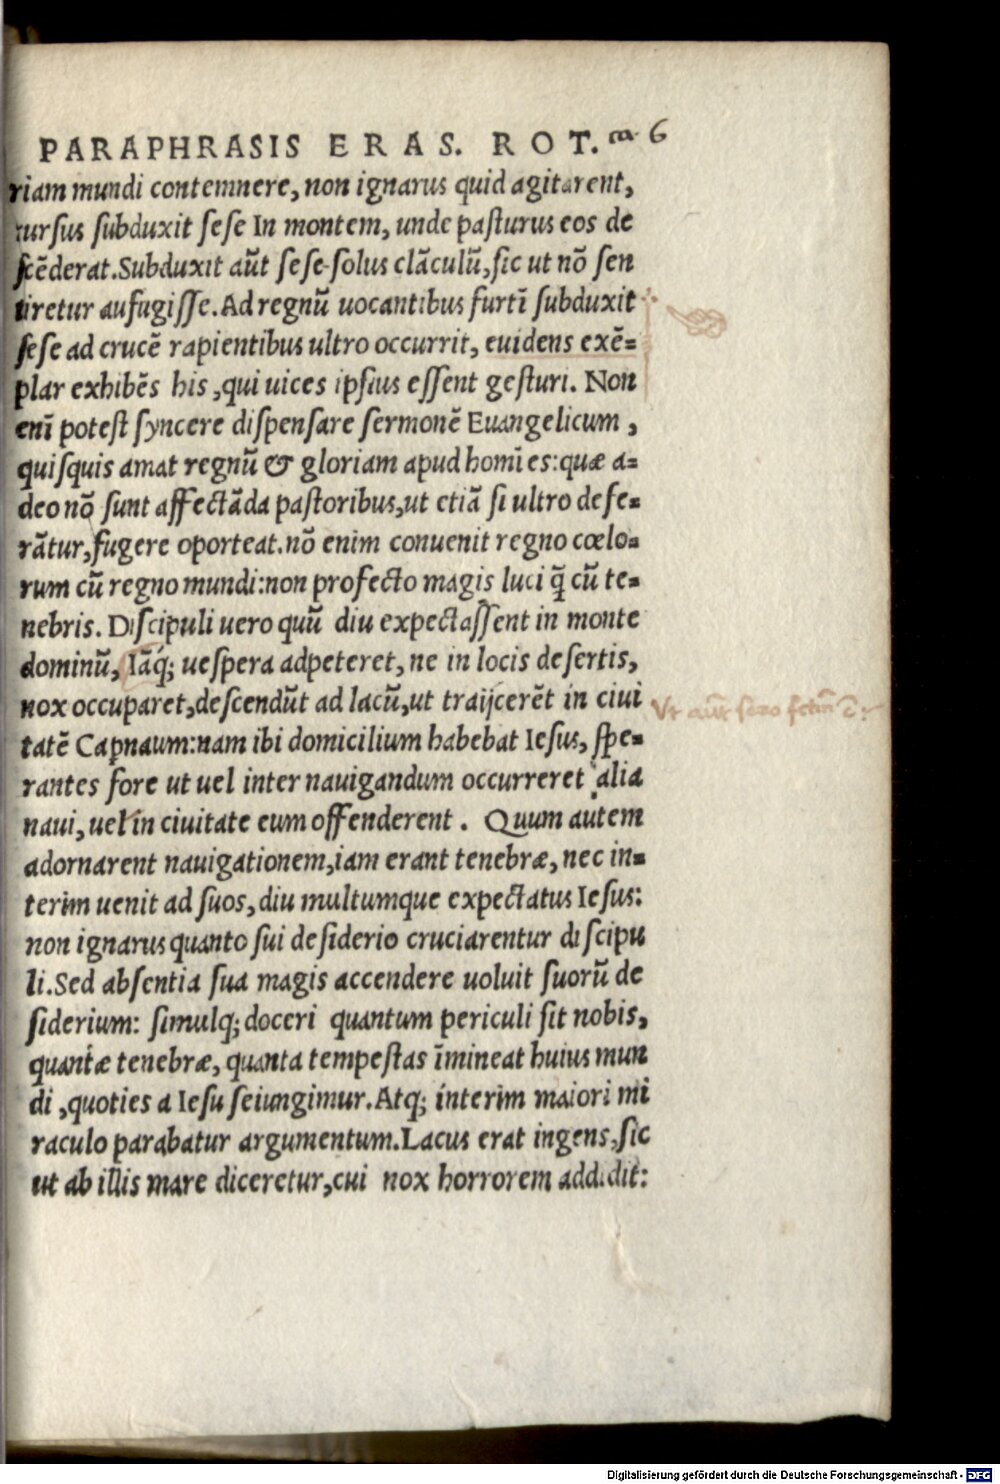 PARAPHRASIS ERAS. ROT. ca. 6
riam mundi contemnere, non ignarus quid agitarent,
rursus subduxit sese In montem, unde pasturus eos de
scēderat. Subduxit aūt sese solus clāculū, sic ut nō sen
tiretur aufugisse. Ad regnū uocantibus furtī subduxit
sese ad crucē rapientibus ultro occurrit, euidens exē=
plar exhibēs his, qui uices ipsius essent gesturi. Non
enī potest syncere dispensare sermonē Euangelicum,
quisquis amat regnū & gloriam apud homīes: quæ a=
deo nō sunt affectāda pastoribus, ut etiā si ultro defe=
rātur, fugere oporteat. nō enim conuenit regno cœlo=
rum cū regno mundi: non profecto magis luci q̄ cū te=
nebris. Discipuli uero quū diu expectassent in monte
dominū, Iāq; uespera adpeteret, ne in locis desertis,
nox occuparet, descendūt ad lacū, ut traijcerēt in ciui
Vt aūt sero
tatē Capnaum: nam ibi domicilium habebat Iesus, spe=
rantes fore ut uel inter nauigandum occurreret alia
naui, uel in ciuitate eum offenderent. Quum autem
adornarent nauigationem, iam erant tenebræ, nec in=
terim uenit ad suos, diu multumque expectatus Iesus:
non ignarus quanto sui desiderio cruciarentur discipu
li. Sed absentia sua magis accendere uoluit suorū de
siderium: simulq; doceri quantum periculi sit nobis,
quantæ tenebræ, quanta tempestas īmineat huius mun
di, quoties a Iesu seiungimur. Atq; interim maiori mi
raculo parabatur argumentum. Lacus erat ingens, sic
ut ab illis mare diceretur, cui nox horrorem addidit:
Digitalisierung gefördert durch die Deutsche Forschungsgemeinschaft - DFG